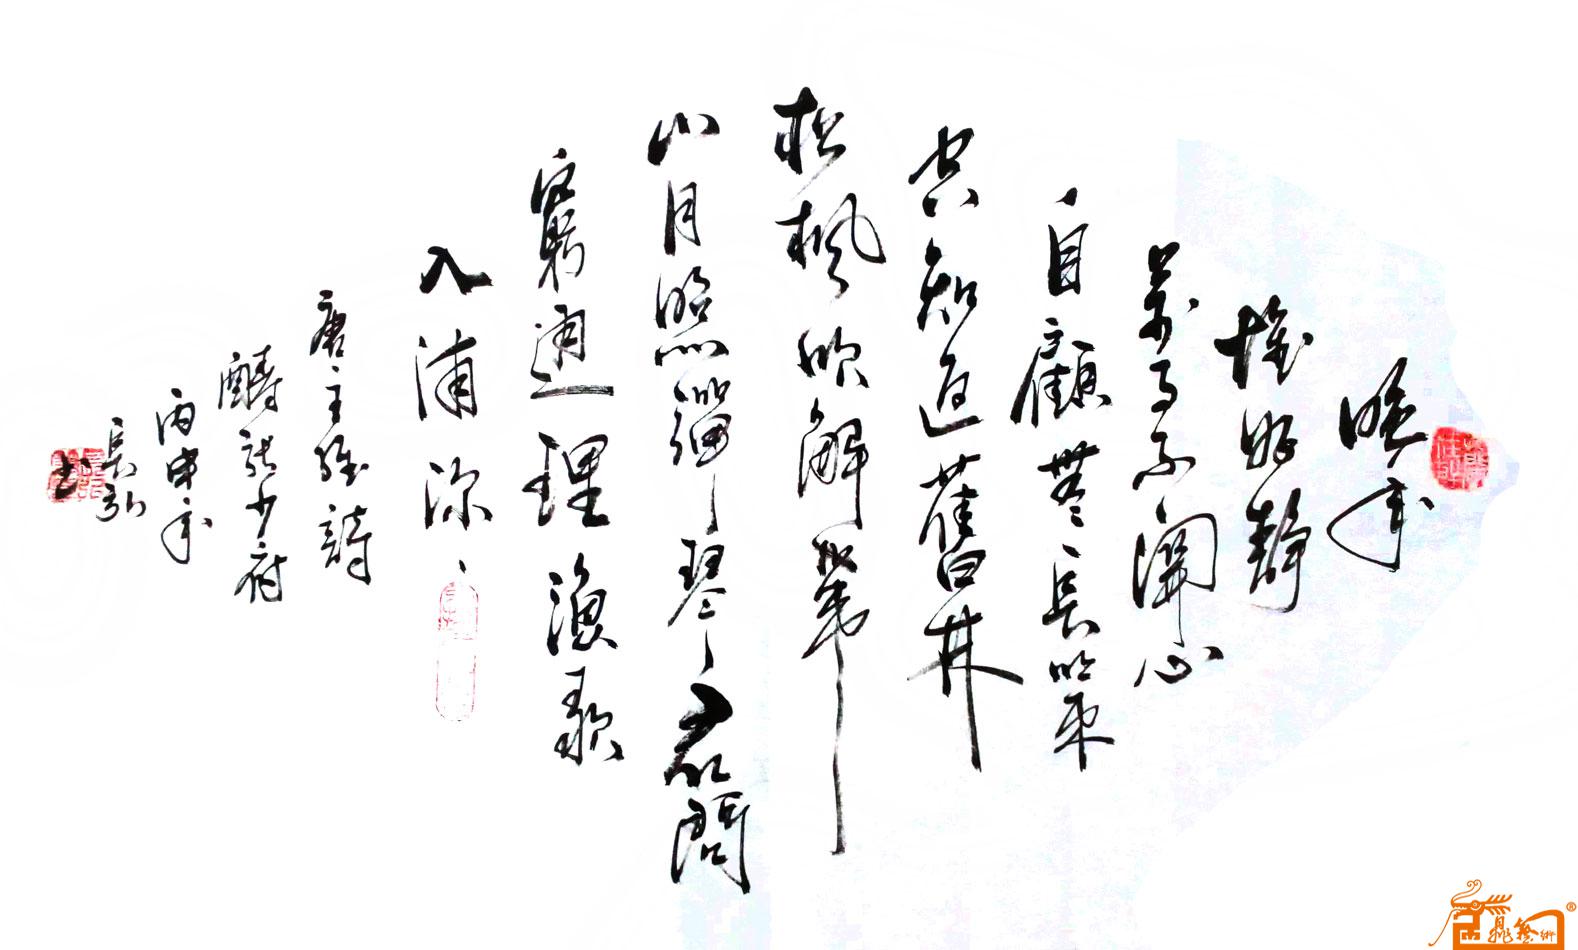 晚年
惟好靜
萬事不關心
自顧無長策
空知返舊林
松風吹解帶
山月照彈琴君問
窮通理漁歌
入浦深
唐王維詩
酬張少府
丙申年
長弘
书